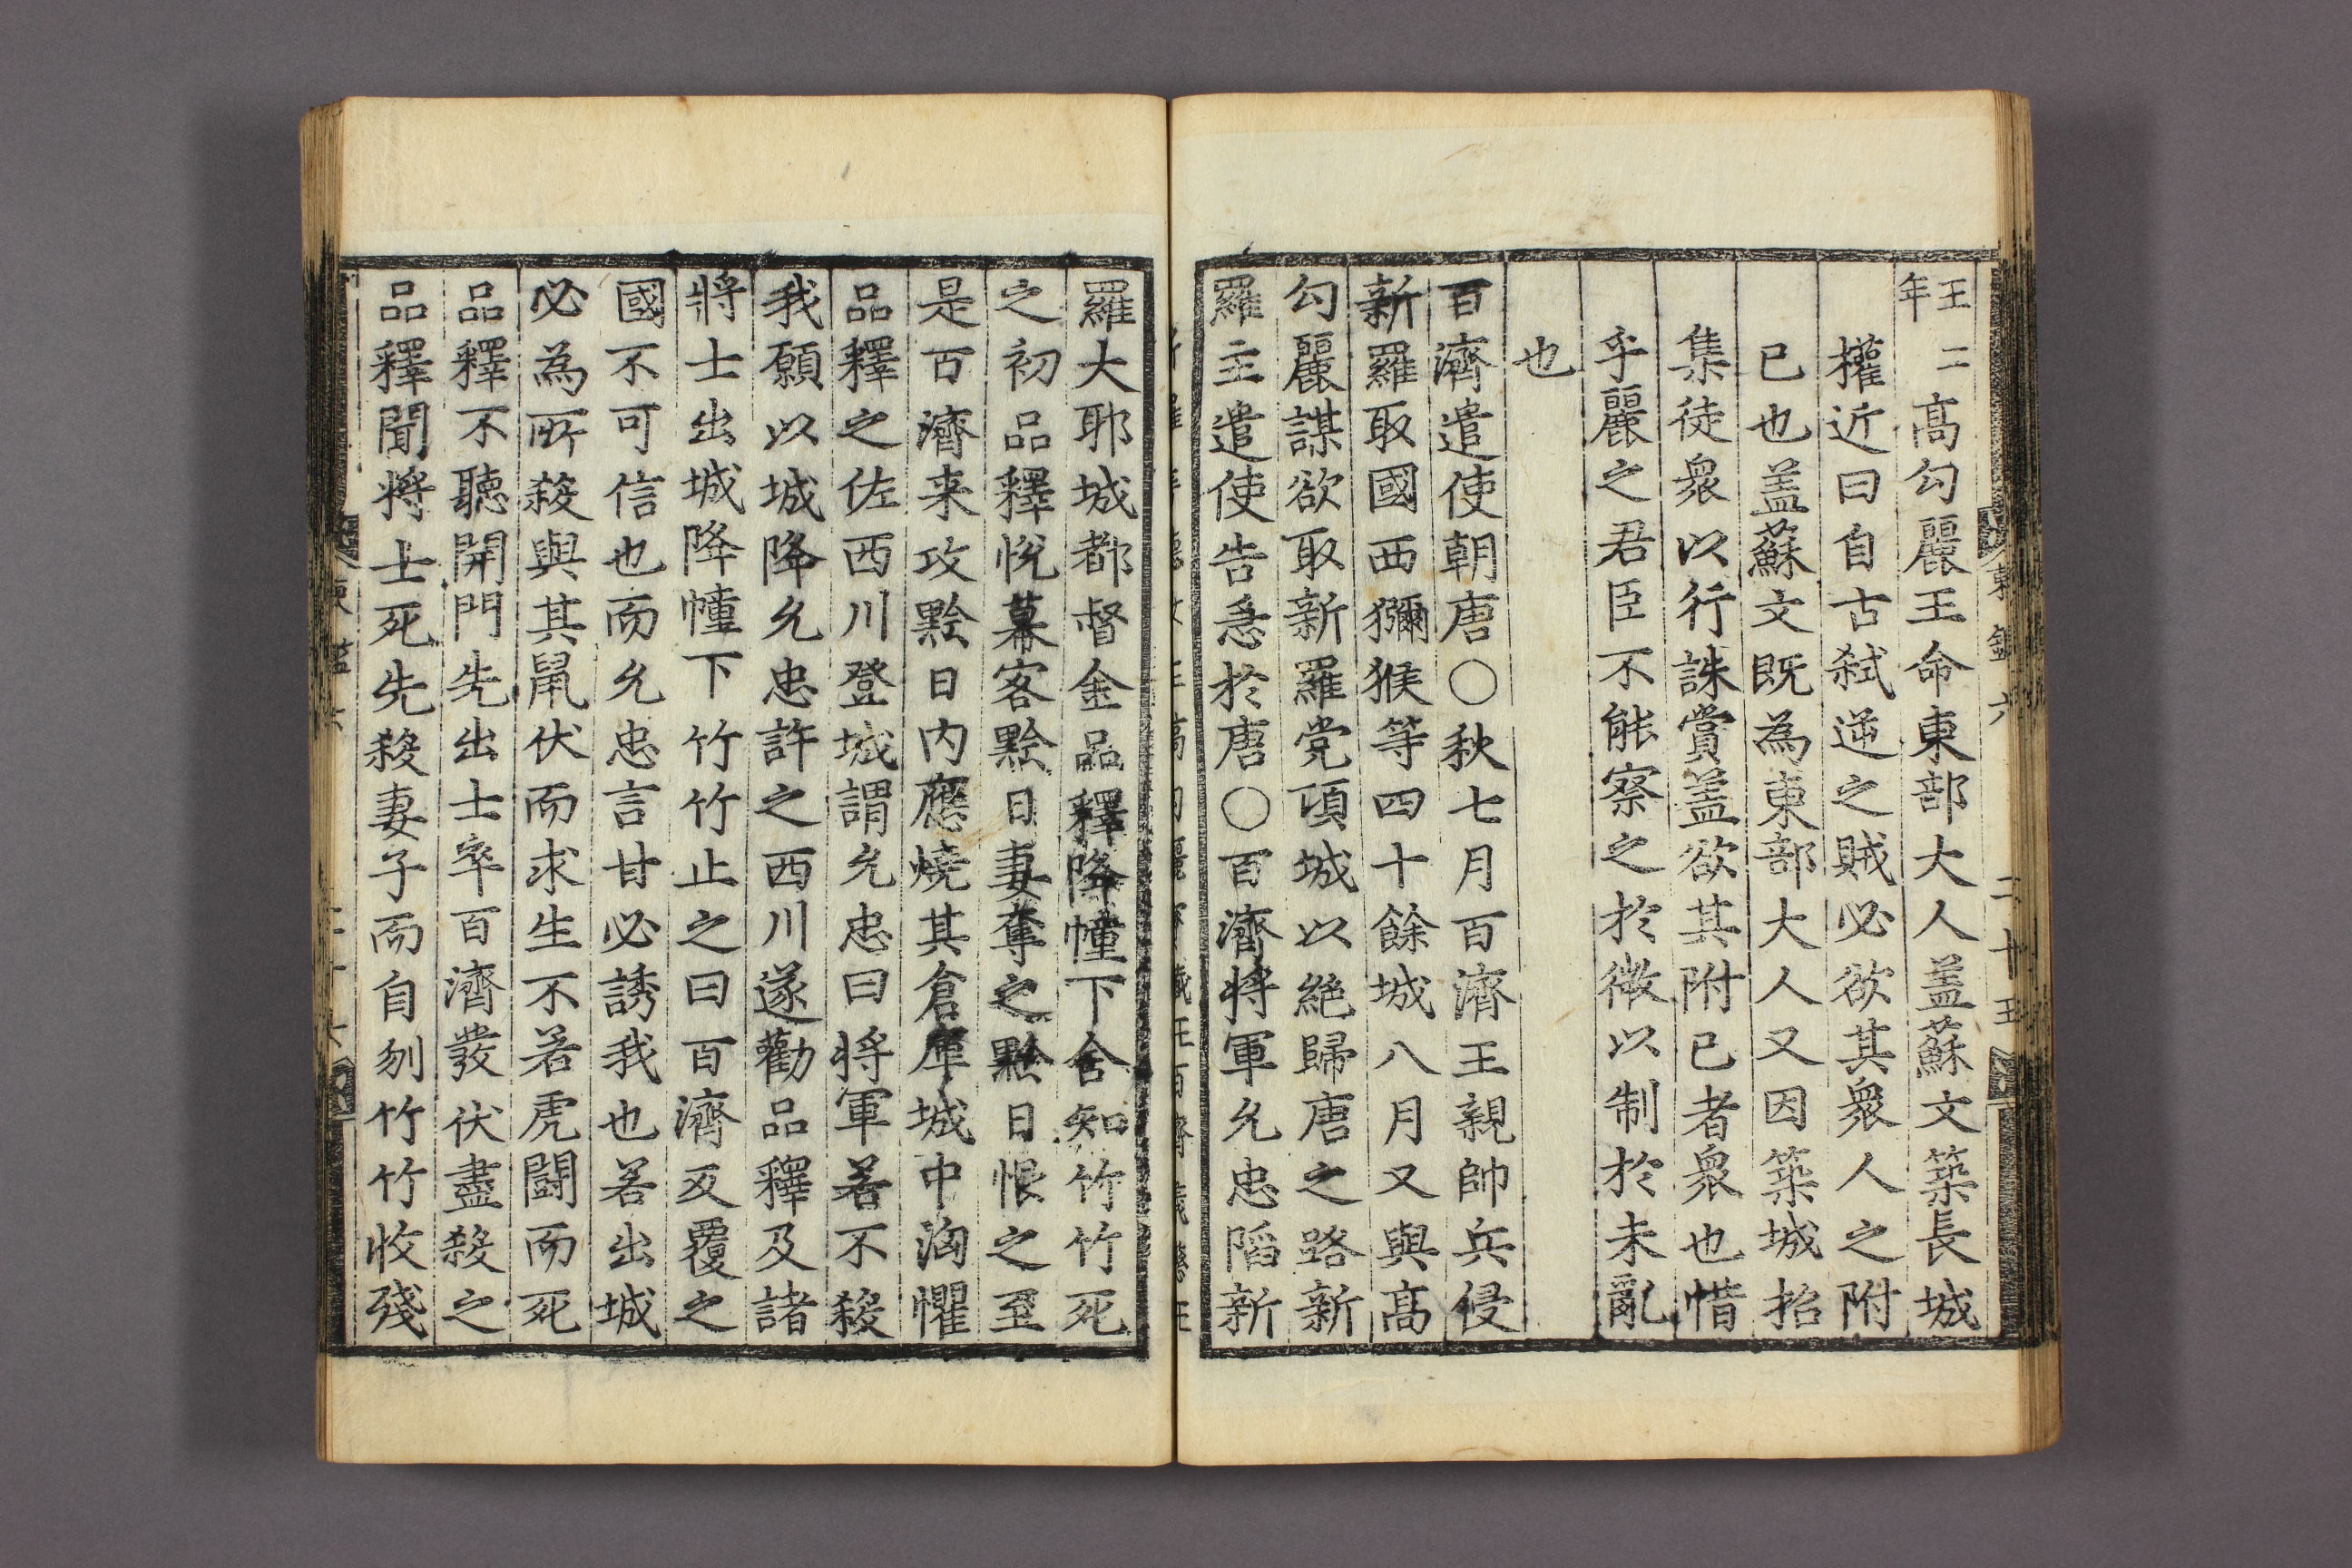 王二年高勾麗王命東部大人盖蘇文築長城
權近曰自古弑逆之賊必欲其衆人之附
已也盖蘇文既為東部大人又因築城招
集徒衆以行誅賞盖欲其附已者衆也惜
乎麗之君臣不能察之於微以制於未亂
也
百濟遣使朝唐○秋七月百濟王親帥兵侵
新羅取國西獼猴等四十餘城八月又與高
勾麗謀欲取新羅党項城以絶歸唐之路新
羅主遣使告急於唐○百濟将軍允忠陷新
羅大耶城都督金品釋降幢下舍知竹竹死
之初品釋悅幕客黔日妻奪之黔日恨之至
是百濟来攻黔日内應燒其倉庫城中洶懼
品釋之佐西川登城謂允忠曰将軍若不殺
我願以城降允忠許之西川遂勸品釋及諸
將士出城降幢下竹竹止之曰百濟反覆之
國不可信也而允忠言甘必誘我也若出城
必為所殺與其鼠伏而求生不若虎闘而死
品釋不聽開門先出士卒百濟發伏盡殺之
品釋聞將士死先殺妻子而自刎竹竹收殘